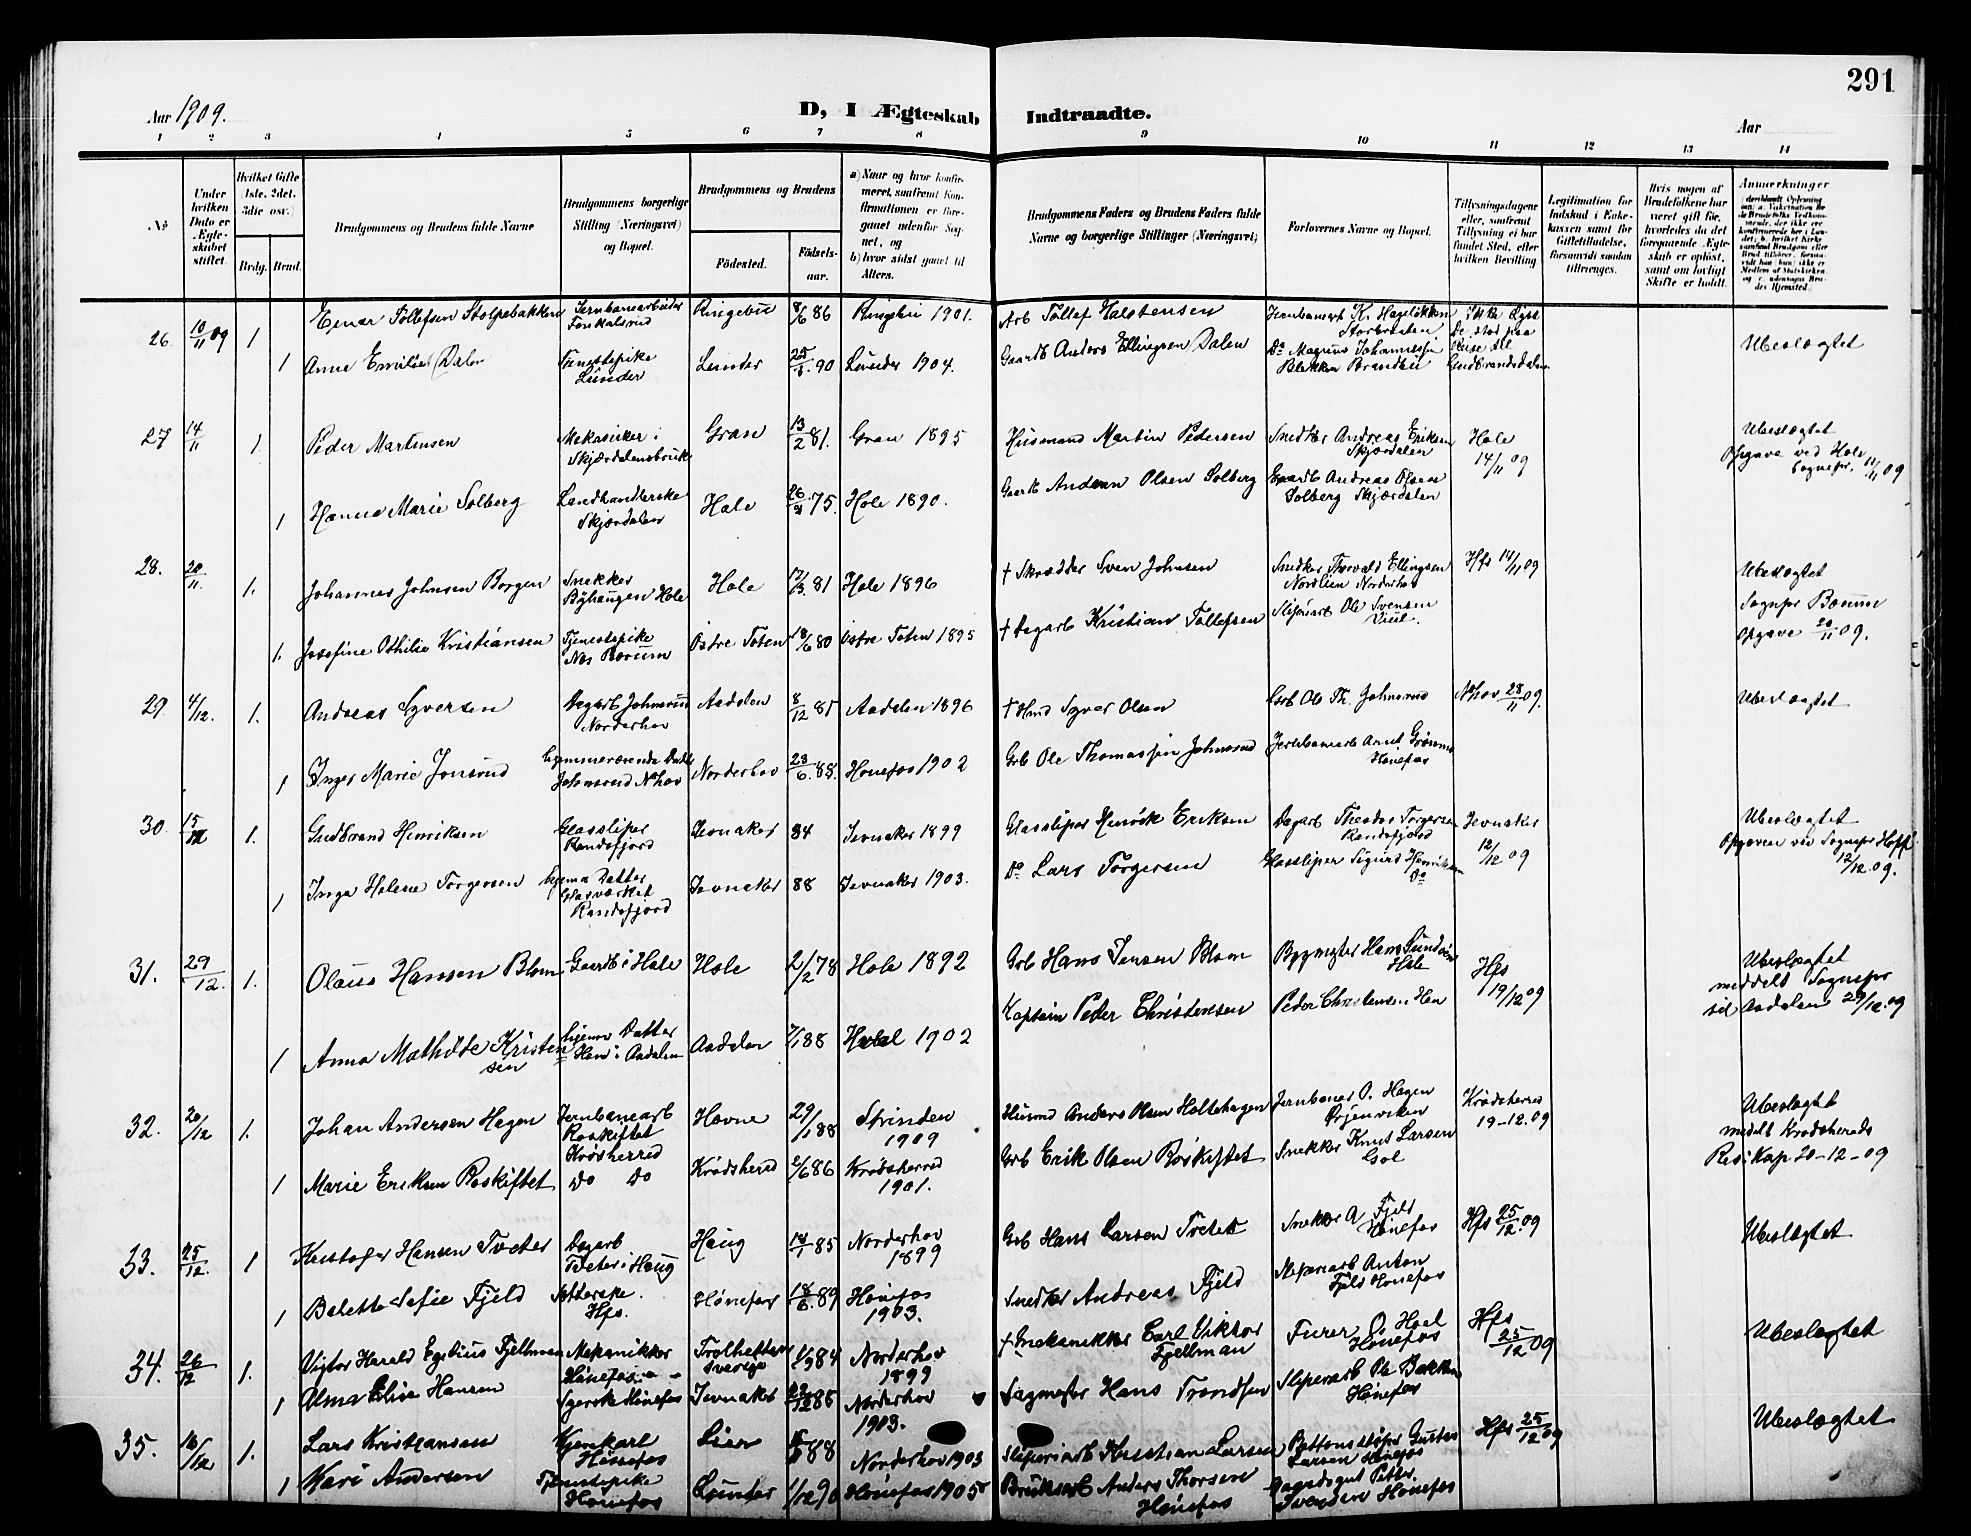 291
Aar 1909.
D, I Ægteskab Indtraadte.
Aar
1 2 3 4 5 6 7 8 9 10 11 12 13 14
No
Under hvilken Dato er Ægteskabet stiftet.
Hvilket Gifte 1ste, 2det, 3die osv.
Brdg. Brud.
Brudgommens og Brudens fulde Navne
Brudgommens borgerlige Stilling (Næringsvei) og Bopæl.
Brudgommens og Brudens
Fødested.
Fødselsaar.
a) Naar og hvor konfirmeret, saafremt Konfirmationen er foregaaet udenfor Sognet, og
b) hvor sidst gaaet til Alters.
Brudgommens Faders og Brudens Faders fulde Navne og borgerlige Stillinger (Næringsvei)
Forlovernes Navne og Bopæl.
Tillysningsdagene eller, saafremt Tillysning ei har fundet Sted, efter hvilken Bevilling
Legitimation for Indskud i Enkekassen samt for Giftetilladelse, forsaavidt saadan tiltrænges.
Hvis nogen af Brudefolkene har været gift før, hvorledes da det foregaaende Ægteskab er opløst, samt om lovligt Skifte er holdt.
Anmerkninger
26. 10/11 09 1 Einar Tollefsen Stolpebakken Jernbanearbeider Ringebu 8/6 86 Ringebu 1901. Arb Tollef Halstensen Jernbanearb K. Hageløkken
1 Anne Emilie Dalen Tjenestepike Lunder 25/1 90 Lunder 1904. Gaardb Anders Ellingsen Dalen Do Magnus Johannessen Ubeslægtet
27 14/11 1. Peder Martinsen Mekaniker i Skjærdalensbruk Gran 13/2 81. Gran 1895 Husmand Martin Pedersen Snedker Andreas Eriksen Skjærdalen Hole 14/11 09 Ubeslægtet Opgave ved Hole Sognepr. 11/11 09
1 Hanna Marie Solberg Landhandlerske Skjærdalen Hole 26/2 75. Hole 1890. Gaardb Andreas Olsen Solberg Gaardb Andreas Olsen Solberg Skjærdalen
28. 20/11. 1. Johannes Johnsen Borgen Snekker Byhaugen Hole Hole 17/3. 81 Hole 1896 † Skrædder Sven Johnsen Snedker Thorvald Ellingsen Nordlien Norderhov Hfs 14/11 09 Ubeslægtet
1. Josefine Othilie Kristiansen Tjenestepike Nes Bærum Østre Toten 18/6 80 Østre Toten 1895 † Dagarb Kristian Tollefsen Sliperiarb Ole Svensen Viul. Sognepr Bærum Opgave 20/11 09.
29. 4/12. 1. Andreas Syversen Dagarb Johnsrud Norderhov Aadalen 8/12 81 Aadalen 1896 † Hmd Syver Olsen Grb Ole Th. Johnsrud Nhov 28/11 09. Ubeslægtet
1 Inger Marie Jonsrud Hjemmeværende Datter Johnsrud Nhov Norderhov 23/6. 88. Hønefos 1902 Grb Ole Thomassen Johnsrud Jernbanearb Anut Hønefos
30. 15/12 1. Gudbrand Henriksen Glassliper Randsfjord Jevnaker 84 Jevnaker 1899 Glassliper Henrik Eriksen Dagarb Theodor Torgersen Randsfjord Jevnaker 12/12 09 Ubeslægtet Opgaven ved Sognepr Hoff 12/12 09.
1 Inga Helene Torgersen hjema Datter Glasværket Randsfjord Jevnaker 88 Jevnaker 1903. Do Lars Torgersen Glassliper Sigurd Henriksen Do
31. 29/12. 1. Olaus Hansen Blom Gaardb i Hole Hole 2/2 78 Hole 1892 Grb Hans Jensen Blom Bygmester Hans Sundøen Hole Hfs 19/12 09 Ubeslægtet meddelt Sognepr til Aadalen 29/12.09
1 Anna Mathilde Kristensen hjema Datter Hen i Aadalen Aadalen 7/1 88 Hole 1902 Kaptein Peder Christensen Peder Christensen Hen
32. 20/12 1. Johan Andersen Hagen Jernbanearb Roskiftet Krødsherred Hovne 29/1 88 Strinden 1909 Husmd Anders Olsen Holtehagen Jernbanearb O. Hagen Ørjenviken Krødsherred 19-12-09 Ubeslægtet medelt Krødsherads Res. Kap 20-12-09
1 Marie Eriksen Roskiftet Do Do Krødsherad 2/6 86 Krødsherred 1901. Grb Erik Olsen Roskiftet Snekker Knut Larsen Gol
33. 25/12. 1 Kristofer Hansen Tveter Dagarb Tveter i Haug Haug 14/1 85 Norderhov 1899 Grb Hans Larsen Tveter Snekker A Fjeld Hønefos Hfs 25/12 09 Ubeslægtet
1 Belette Sofie Fjeld Hfs. Hønefos 18/6. 89 Hønefos 1903. Snedker Andreas Fjeld Sliperiarb Anton Fjeld Hønefos
34. 26/12 1. Vigtor Harald Egidius Fjellman Mekanikker Hønefos Trolhetten Sverige 1/9 84 Norderhov 1899 † Mekanikker Carl Viktor Fjellman Furer O. Hoel Hønefos Hfs 25/12 09 Ubeslægtet
1 Alma Elise Hansen Syerske Hønefos Jevnaker 22/12 88 Norderhov 1903. Sagmester Hans Trondsen Sliperarb Ole Bakken Hønefos
35. 16/12 1. Lars Kristiansen Kjørekarl Hønefos Lier 88 Norderhov 1903 Sliperiarb Kristian Larsen Larsen Hønefos Hfs 25/12 09 Ubeslægtet
1 Kari Andersen Tjenestepike Hønefos Lunder 1/12 90 Hønefos 1905 Bruksarb Anders Thorsen Hønefos Svendsen Hønefos